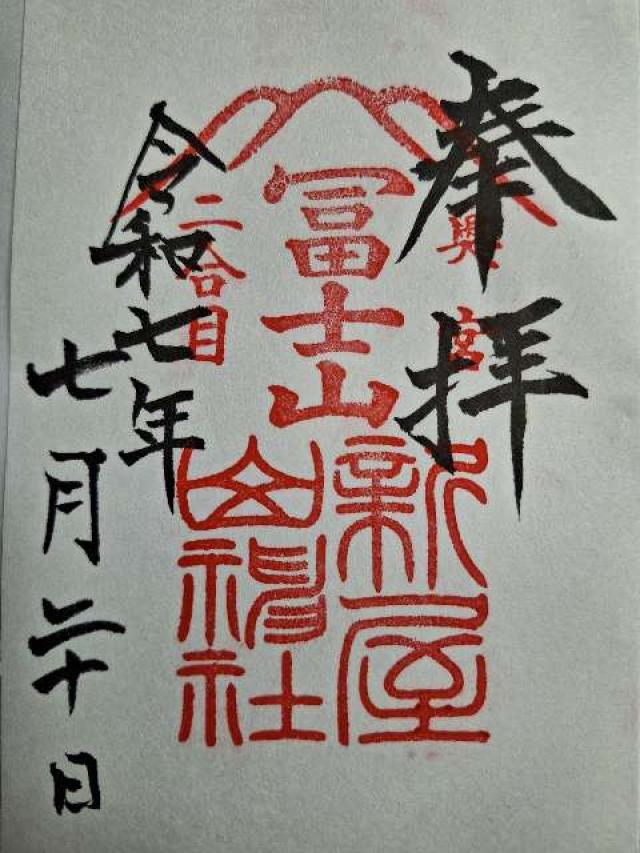 奉拝
奥宮
冨士山
二合目
新屋
山神社
令和七年
七月二十日